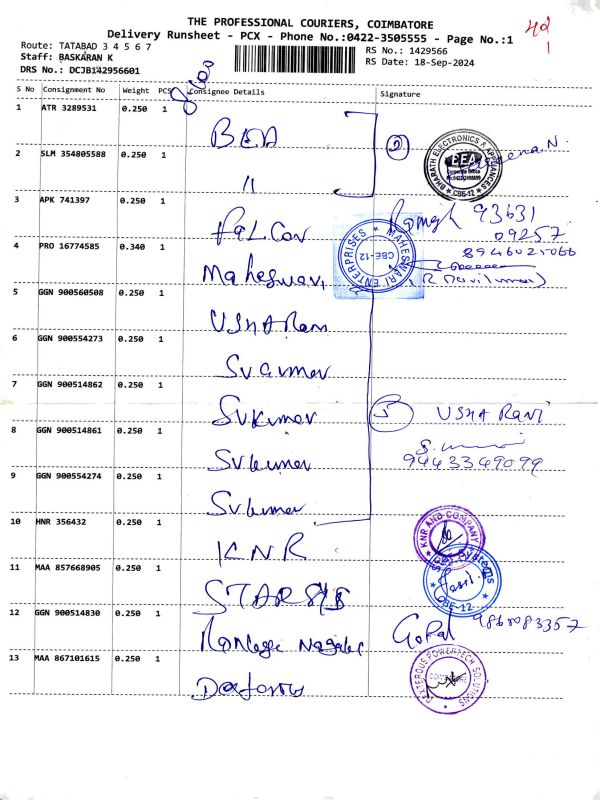 THE PROFESSIONAL COURIERS, COIMBATORE
Delivery Runsheet - PCX - Phone No.:0422-3505555 - Page No.:1
Route: TATABAD 3 4 5 6 7
RS No.: 1429566
Staff: BASKARAN K
RS Date: 18-Sep-2024
DRS No.: DCJB142956601
S No Consignment No Weight PCS Consignee Details Signature
1 ATR 3289531 0.250 1 BEA
2 SLM 354805588 0.250 1 "
BHARATH ELECTRONICS & APPLIANCES
BEA
CBE-12
3 APK 741397 0.250 1 FALCON
93631
09257
4 PRO 16774585 0.340 1 Maheswari
MAHESWARI ENTERPRISES
CBE-12
8946025066
5 GGN 900560508 0.250 1 USHA Rani
6 GGN 900554273 0.250 1
7 GGN 900514862 0.250 1 SVKumar
5 USHA Rani
8 GGN 900514861 0.250 1 SVKumar
9443349099
9 GGN 900554274 0.250 1 SVKumar
10 HNR 356432 0.250 1 KNR
KNR AND COMPANY
11 MAA 857668905 0.250 1 STAR SYS
CBE-12
12 GGN 900514830 0.250 1
Gopal 9861083357
13 MAA 867101615 0.250 1
DEXTEROUS POWERTECH SOLUTIONS
COIMBATORE